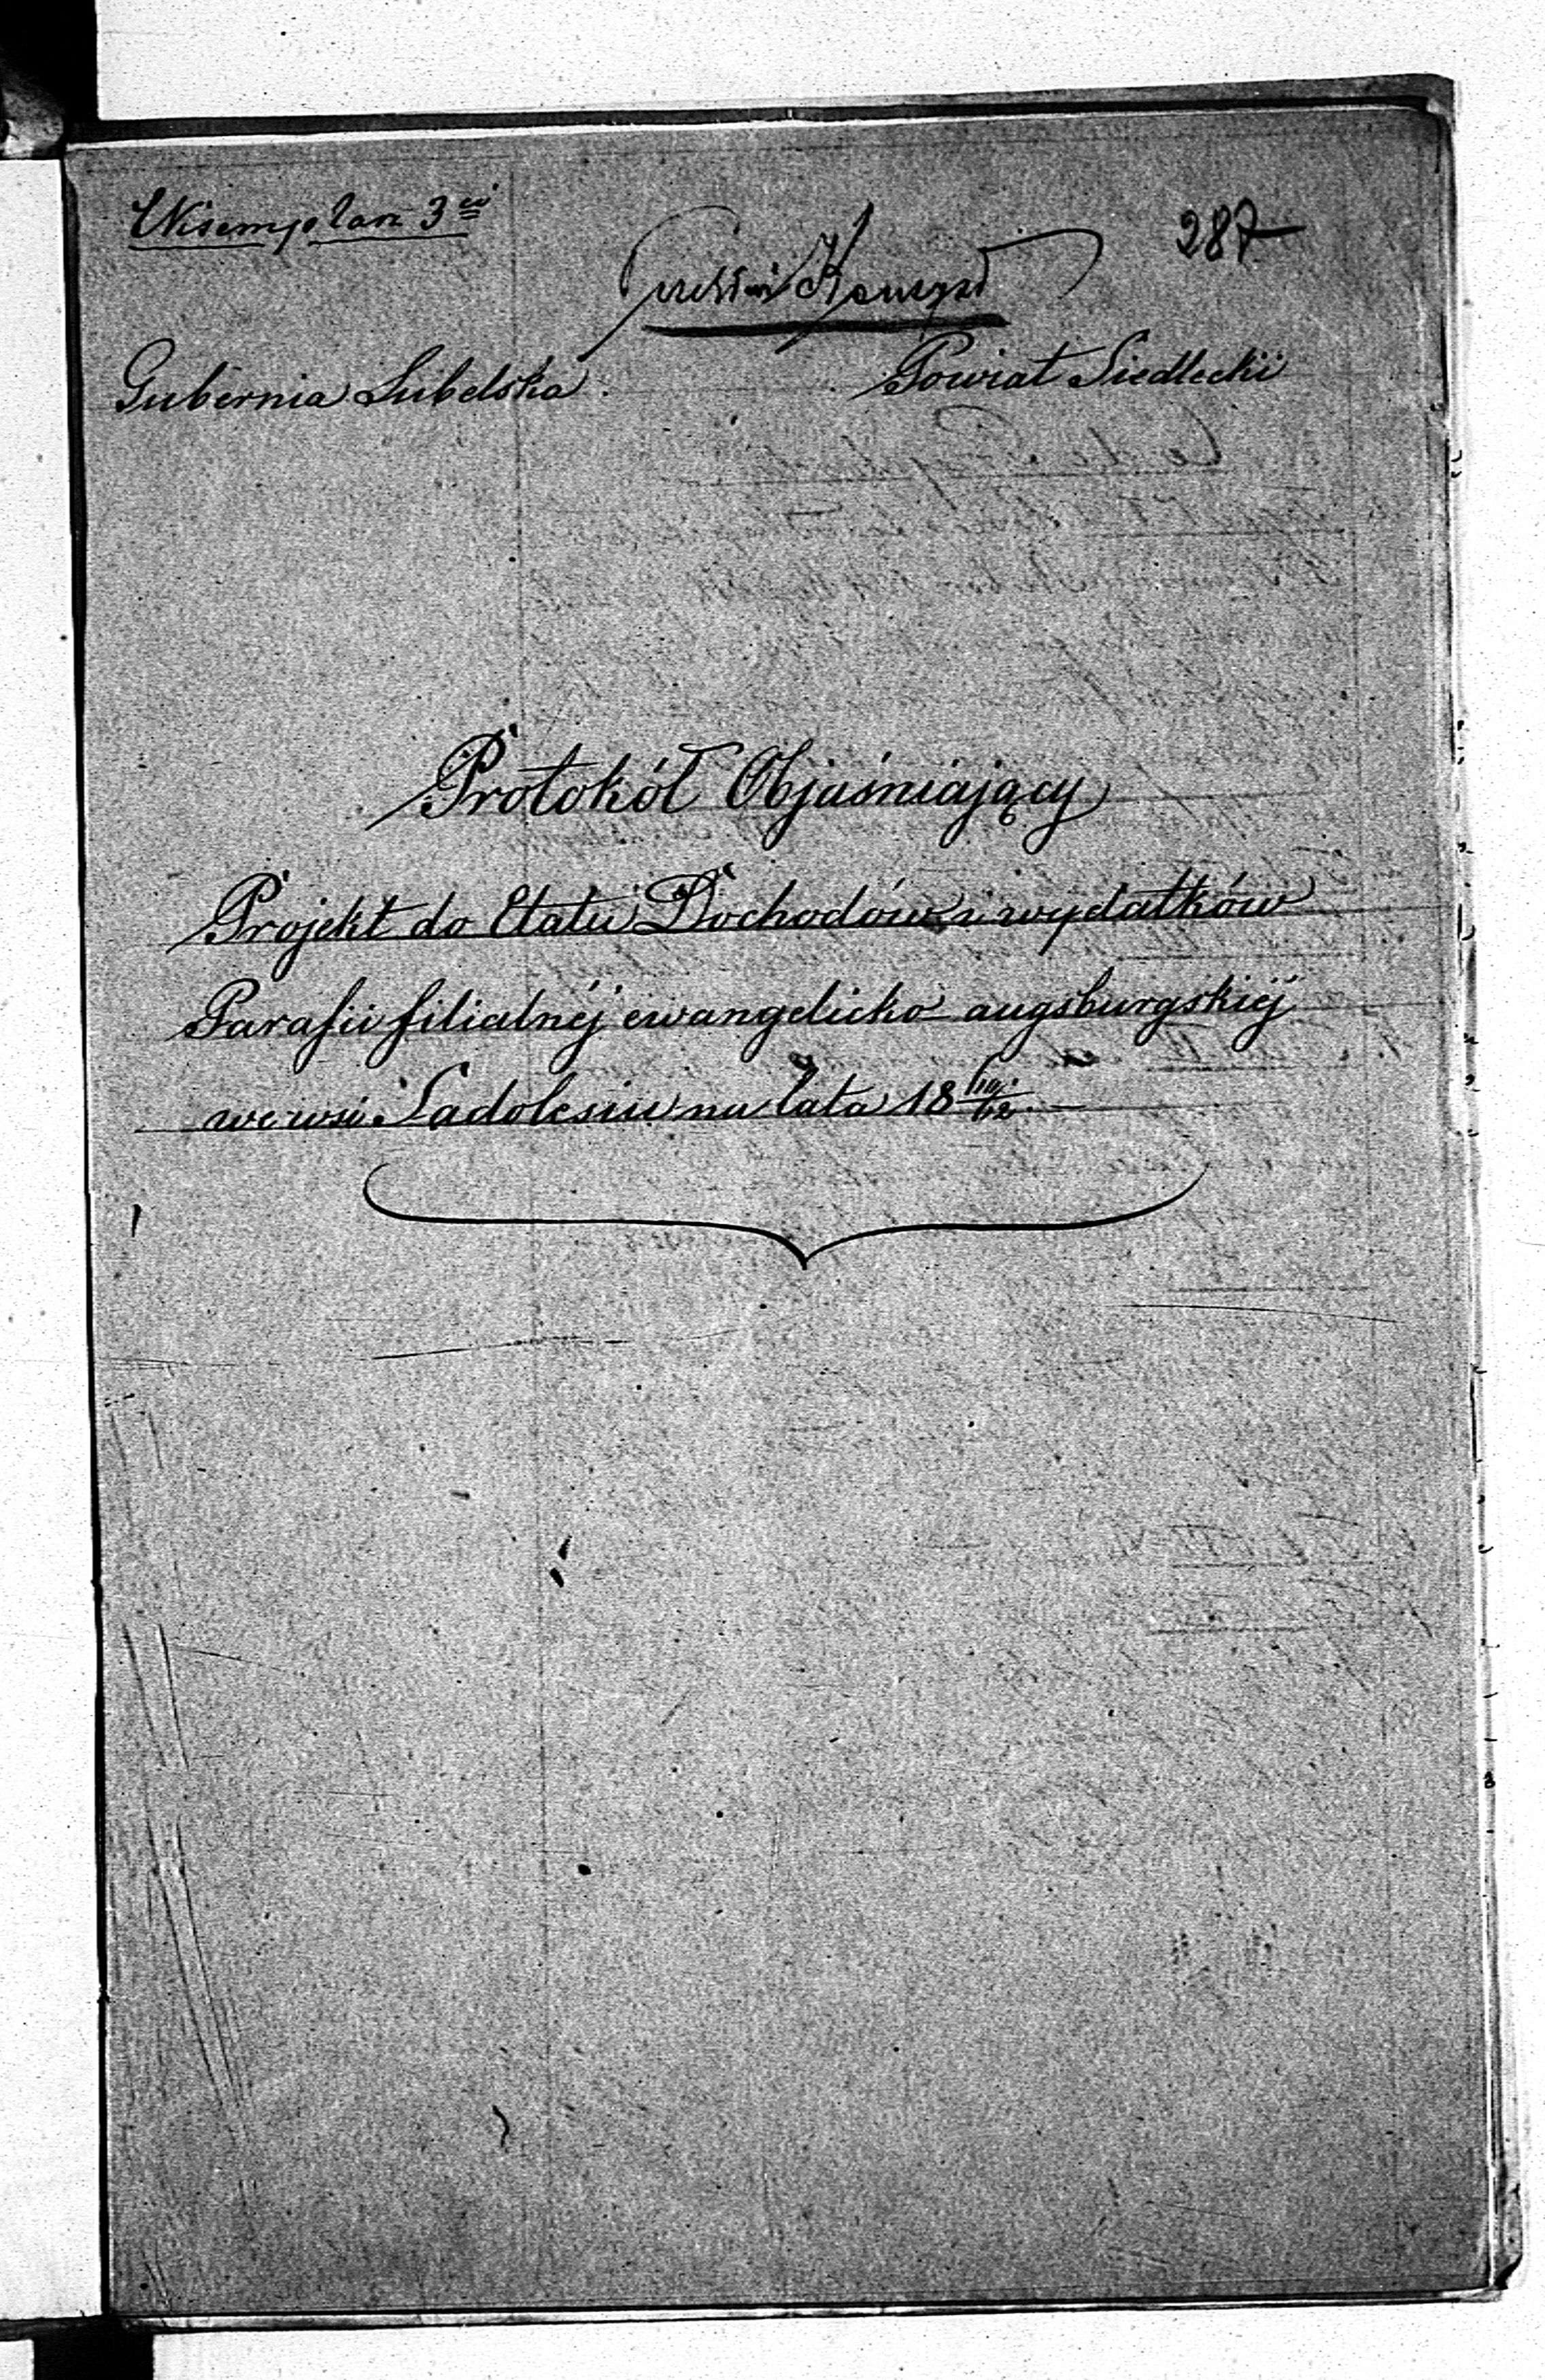 Exemplarz 3ci
287
Gubernia Lubelska.
Powiat Siedlecki
Protokół Objaśniający
Projekt do Etatu Dochodów i wydatków
Parafii filialnéj ewangelicko augsburgskiéj
we wsi Sadolesiu na lata 18